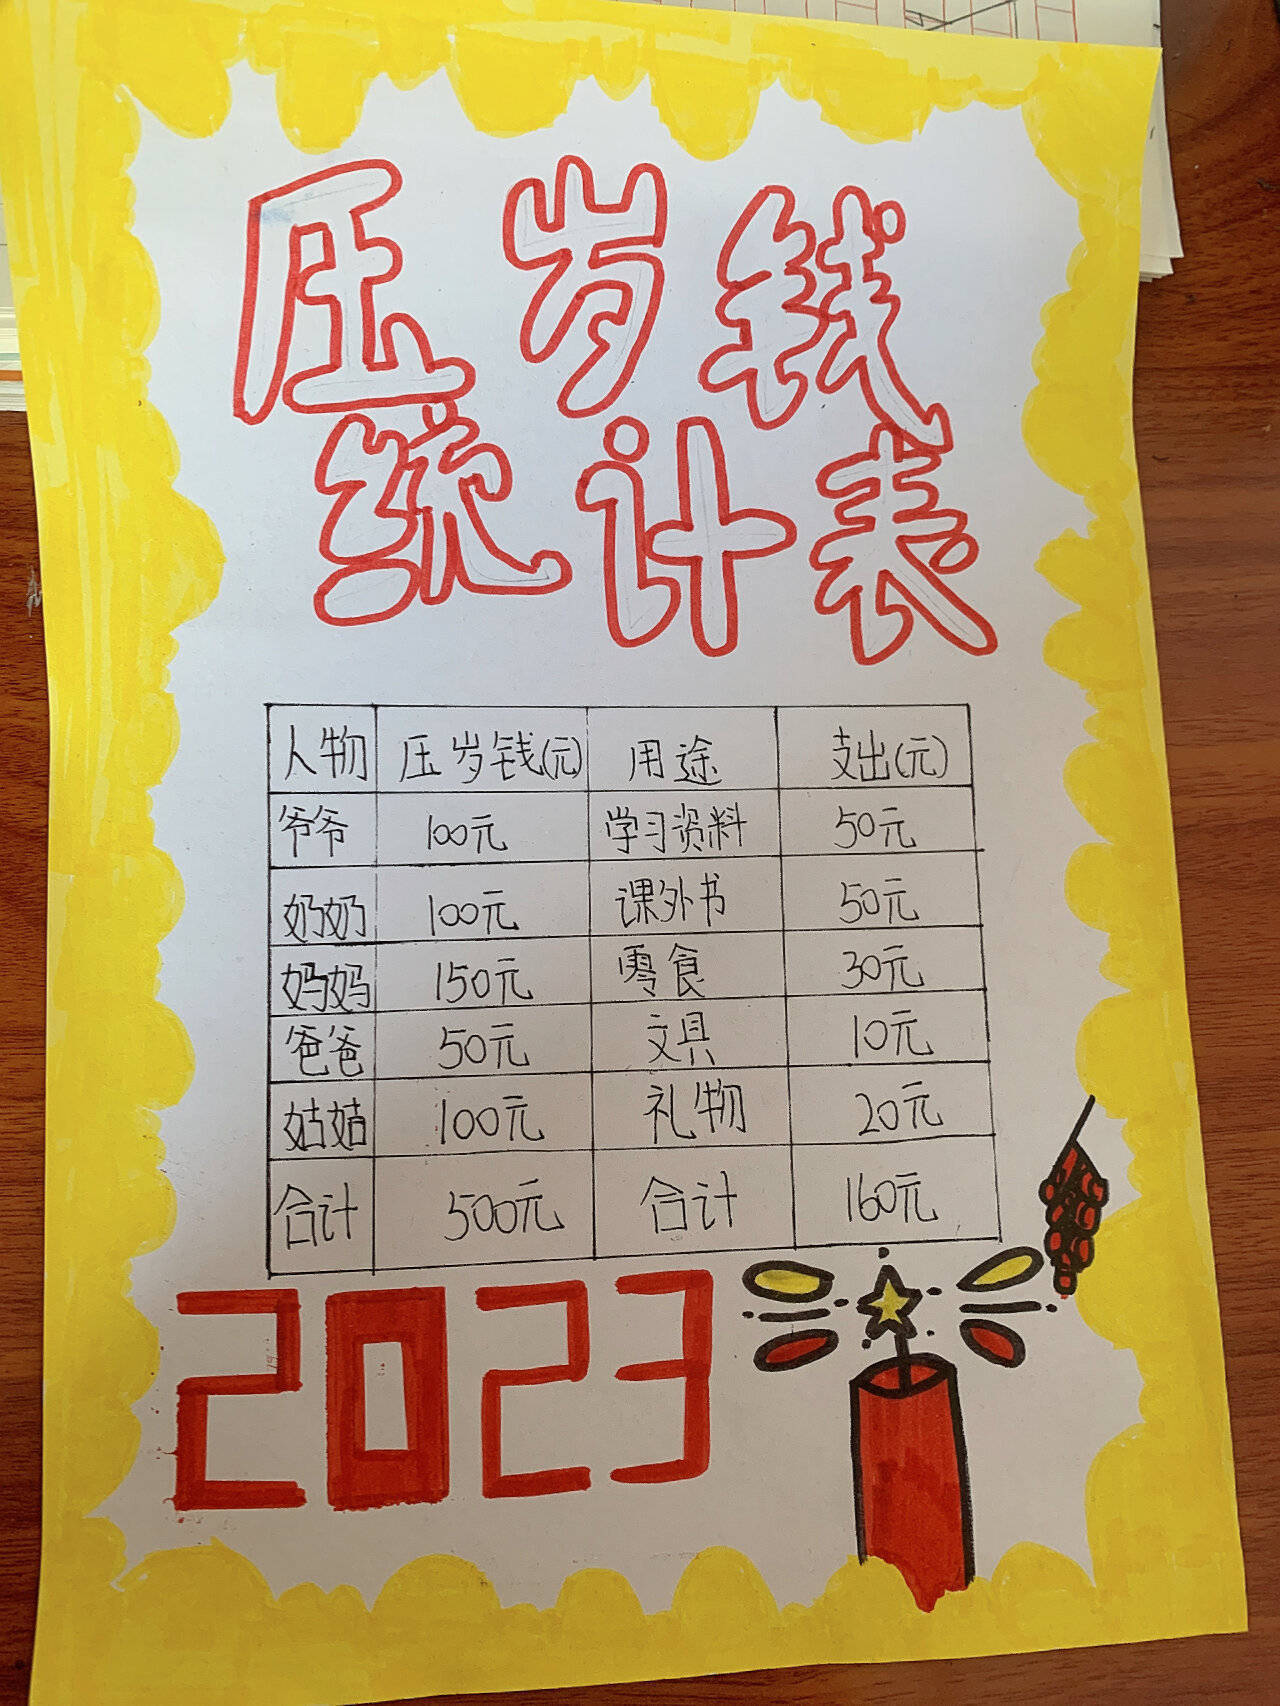 压岁钱
统计表
人物 压岁钱(元) 用途 支出(元)
爷爷 100元 学习资料 50元
奶奶 100元 课外书 50元
妈妈 150元 零食 30元
爸爸 50元 文具 10元
姑姑 100元 礼物 20元
合计 500元 合计 160元
2023